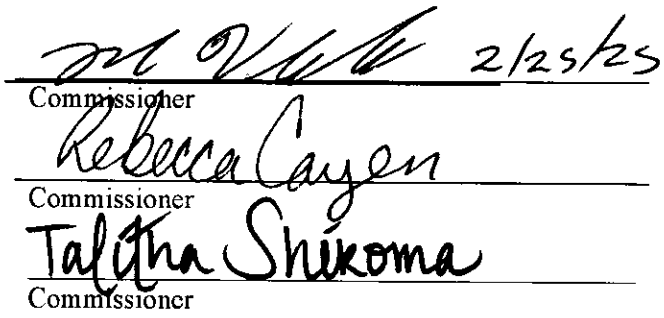 2/25/25
Commissioner
Rebecca Cayen
Commissioner
Talitha Shikoma
Commissioner